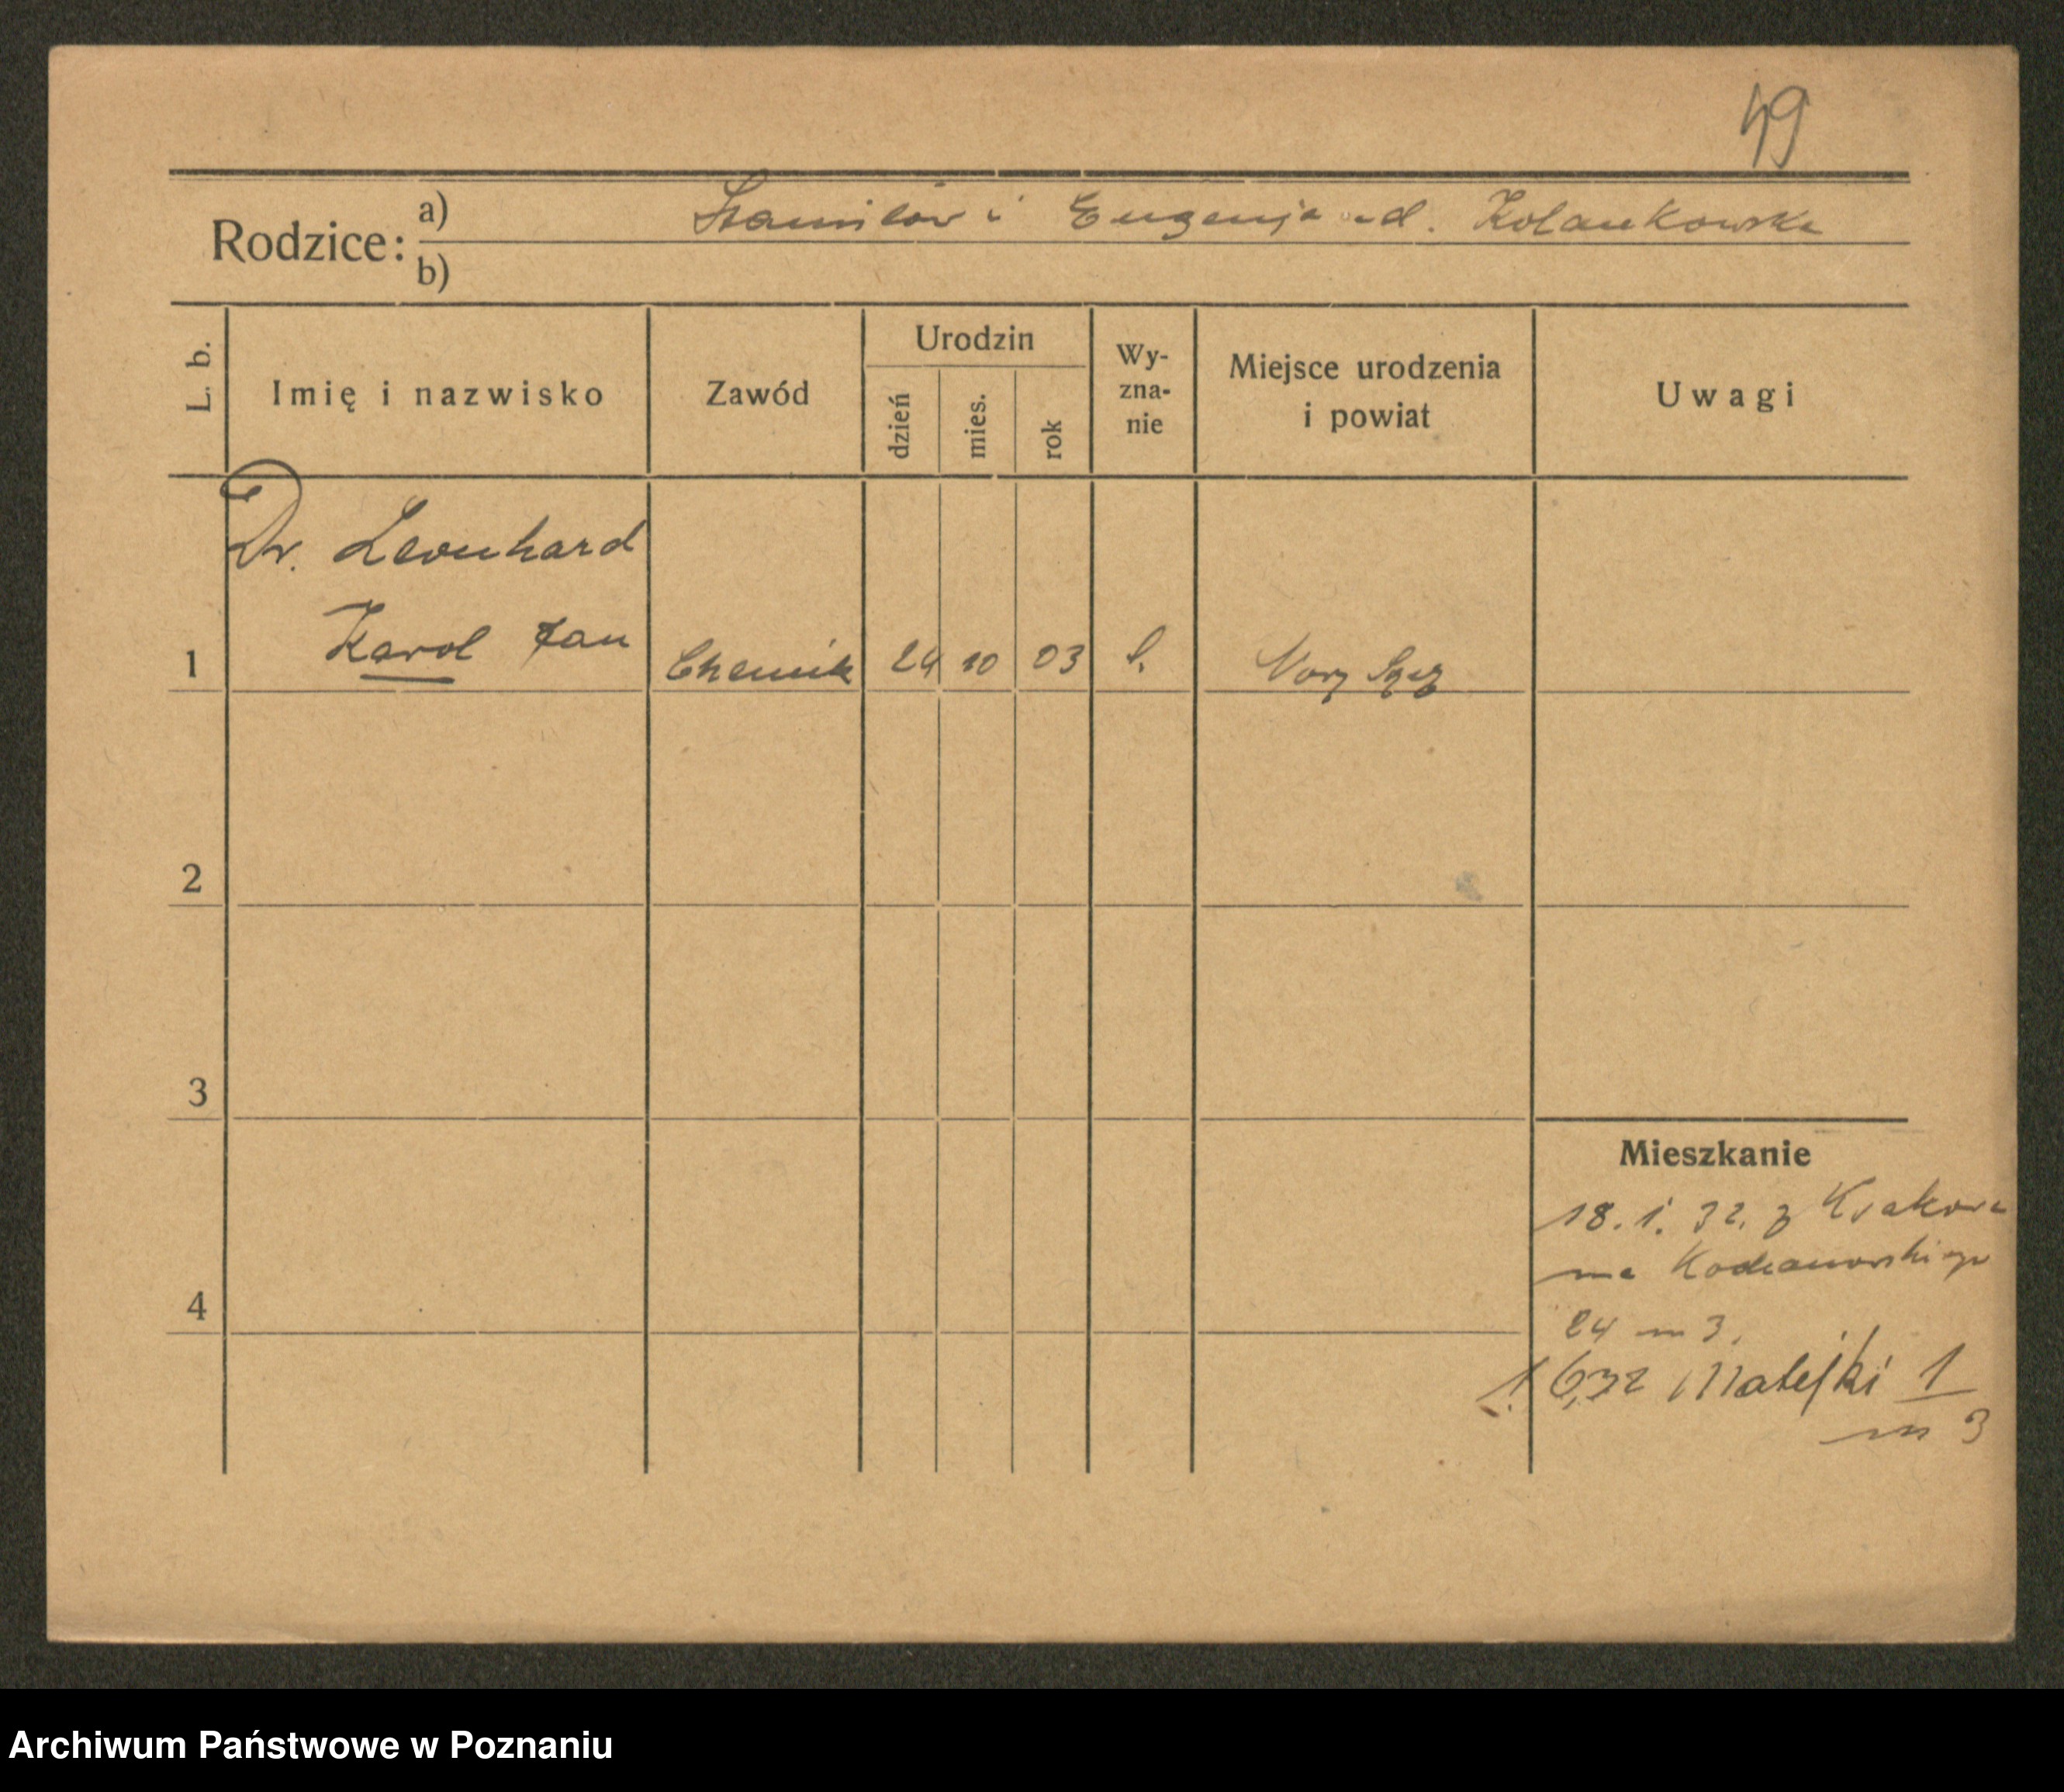 49
Rodzice: a) Stanisław i Eugenja ud. Kolankowska
b)
L. b. Imię i nazwisko Zawód Urodzin dzień mies. rok Wy-zna-nie Miejsce urodzenia i powiat Uwagi
Dr. Leonhard
1 Karol Jan Chemik 24 10 03 Nowy Sącz
2
3
4
Mieszkanie
18. 1. 32. z Krakowa
na Kochanowskiego
24 m 3.
1. 6.32 Matejki 1
m 3
Archiwum Państwowe w Poznaniu